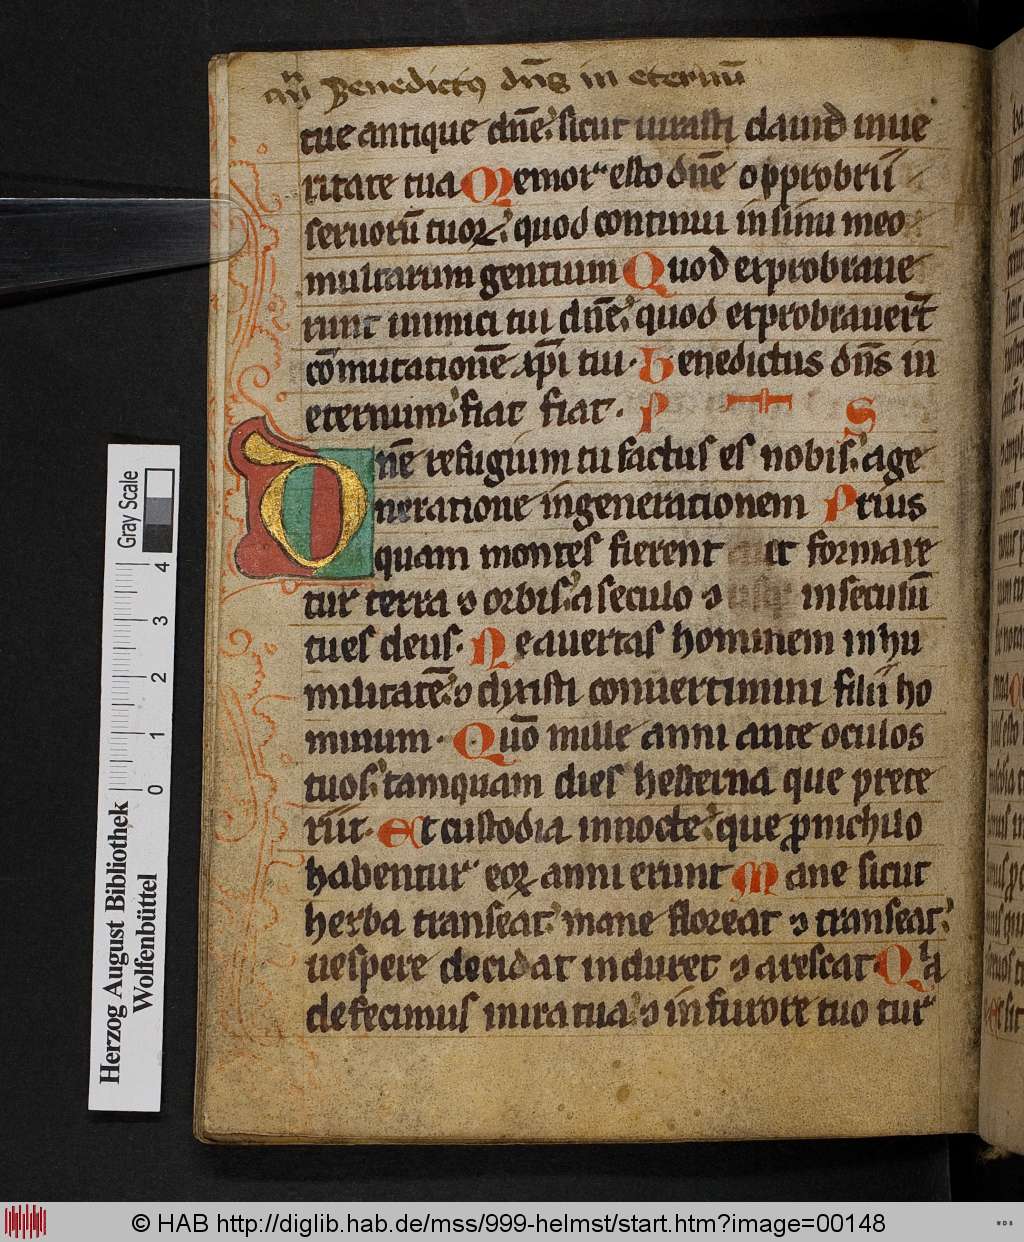 añ Benedictꝰ dn̄s in eternū
tue antique dn̄e: sicut iurasti dauid in ue
ritate tua Memor esto dn̄e opprobrii
seruorū tuoꝝ: quod continui in sinu meo
multarum gentium Quod exprobraue
runt inimici tui dn̄e: quod exprobrauer̄t
cōmutationē xp̄i tui. Benedictus dn̄s in
eternum: fiat fiat. P S
Dn̄e refugium tu factus es nobis: a ge
neratione in generationem Prius
quam montes fierent aut formare
tur terra ⁊ orbis: a seculo ⁊ usqꝫ in seculū
tu es deus. Ne auertas hominem in hu
militatē: ⁊ dixisti conuertimini filii ho
minum. Quō mille anni ante oculos
tuos: tamquam dies hesterna que prete
riit. Et custodia in nocte: que ꝓ nichilo
habentur eoꝝ anni erunt Mane sicut
herba transeat: mane floreat ⁊ transeat:
uespere decidat induret ⁊ arescat. Qa
defecimus in ira tua: ⁊ in furore tuo tur
Gray Scale
4 3 2 1 0
Herzog August Bibliothek
Wolfenbüttel
© HAB http://diglib.hab.de/mss/999-helmst/start.htm?image=00148